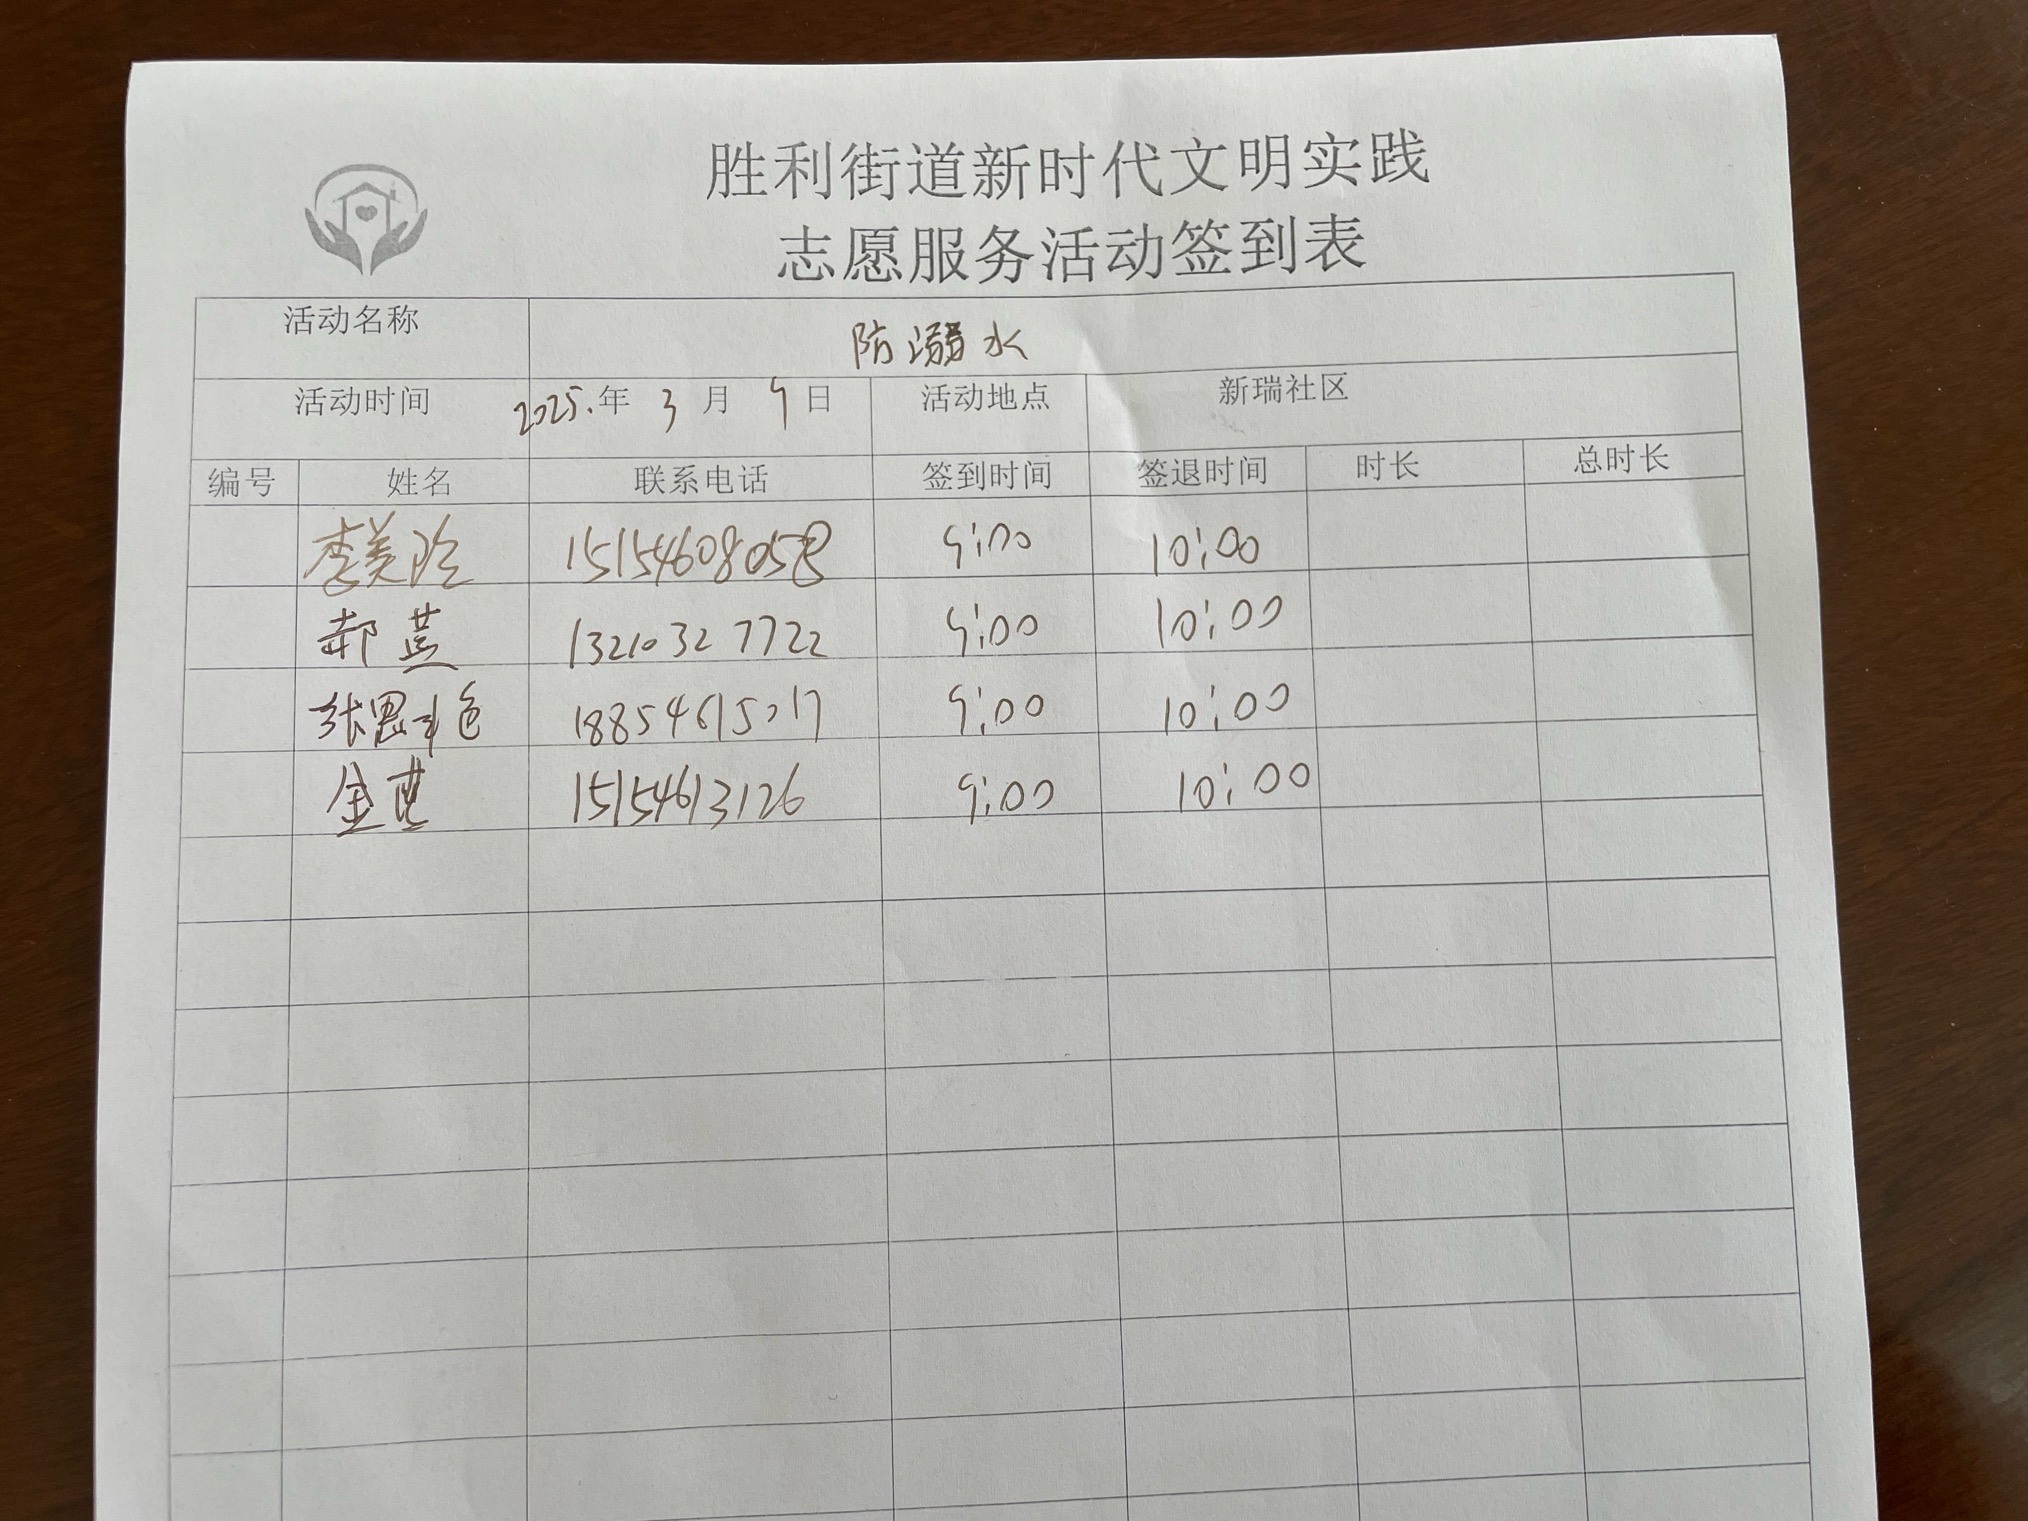 胜利街道新时代文明实践
志愿服务活动签到表
活动名称 防溺水
活动时间 2025.年 3月 9日 活动地点 新瑞社区
编号 姓名 联系电话 签到时间 签退时间 时长 总时长
李美玲 15154608058 9:00 10:00
郝蓝 13210327722 9:00 10:00
张思艳 18854615017 9:00 10:00
金燕 15154613126 9:00 10:00